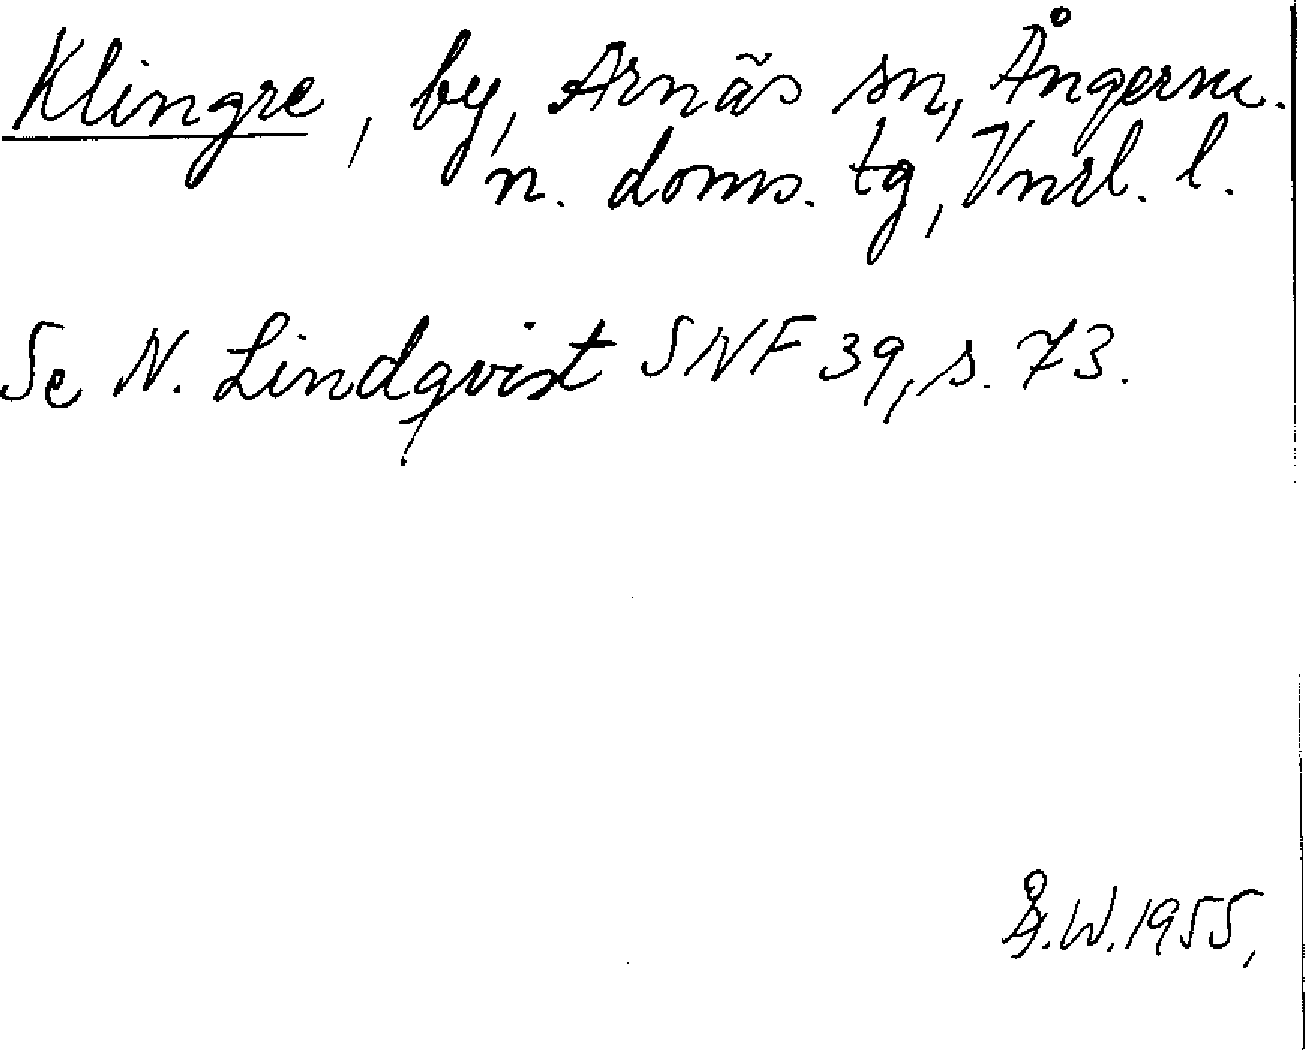 Klingre, by, Arnäs sn, Ångerm.
n. doms. tg, Vnrl. l.
Se N. Lindqvist SNF 39, s. 73.
Å.W. 1955,